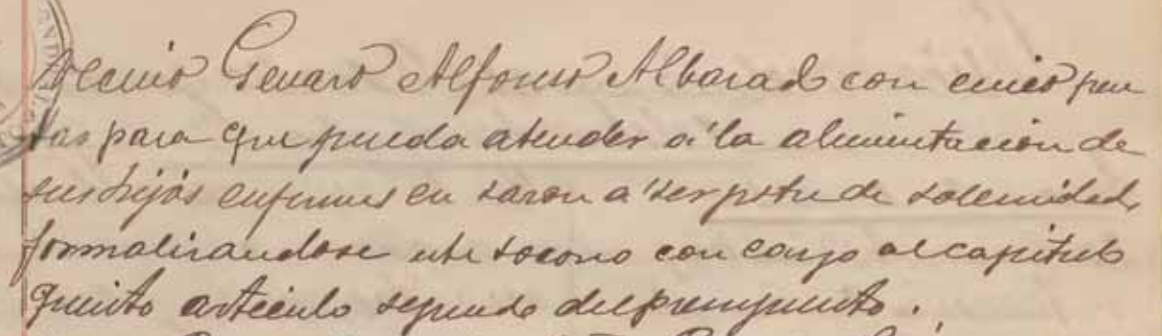 vecino Genaro Alfonso Albarad con cinco pese
tas para que pueda atender á la alimentacion de
sus hijos enfermos en razon a ser pobre de solemnidad,
formalizandose este socorro con cargo al capitulo
quinto articulo segundo del presupuesto.